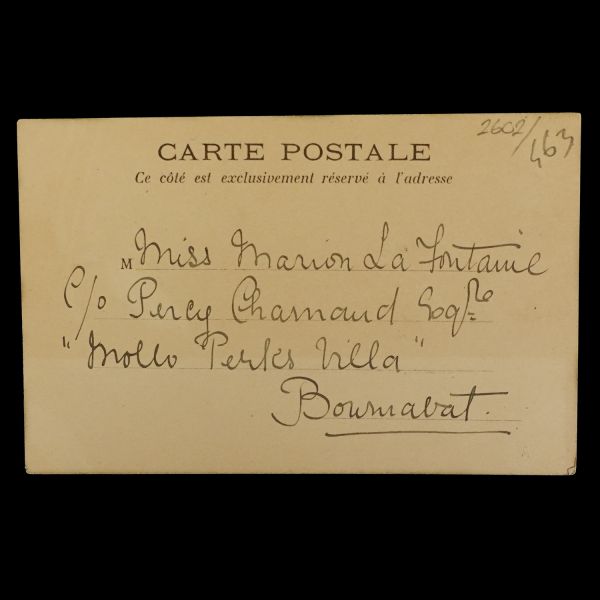 2602/463
CARTE POSTALE
Ce côté est exclusivement réservé à l'adresse
M Miss Marion La Fontaine
C/o Percy Charnaud Esqre
"Mollo Perks Villa"
Bournabat.